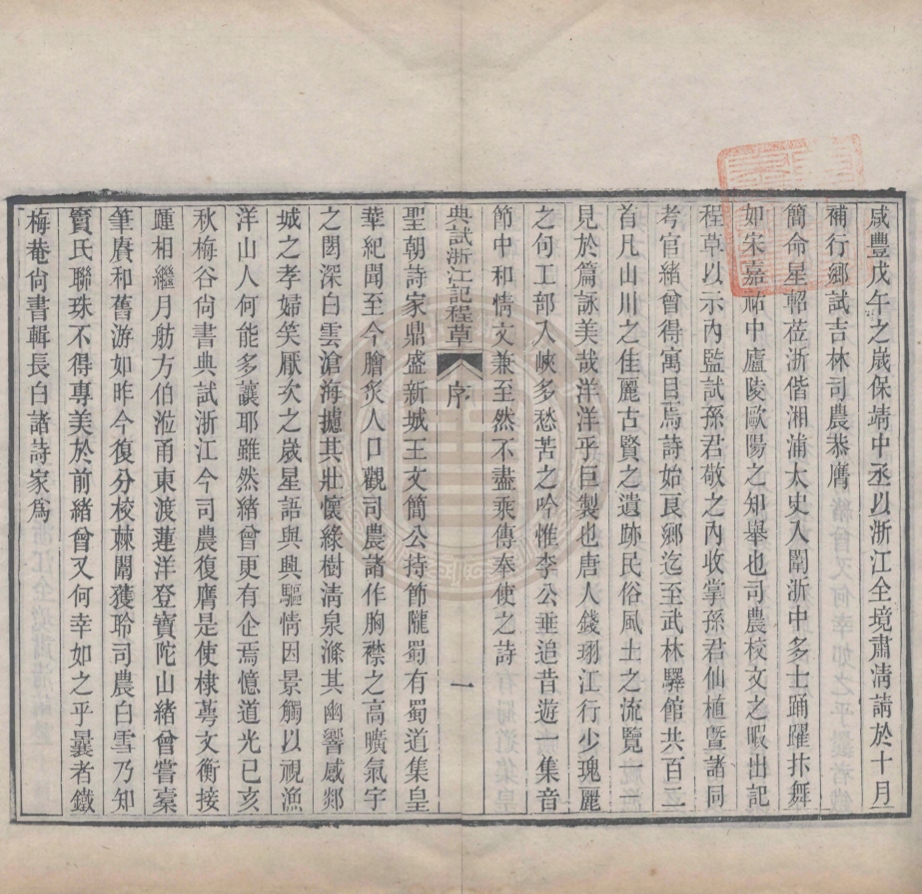 咸豐戊午之歲保靖中丞以浙江全境肅淸請於十月
補行鄉試吉林司農恭膺
簡命星軺莅浙偕湘浦太史入闈浙中多士踊躍抃舞
如宋嘉祐中廬陵歐陽之知舉也司農校文之暇出記
程草以示內監試孫君敬之內收掌孫君仙植曁諸同
考官緒曾得寓目焉詩始良鄉迄至武林驛館共百二
首凡山川之佳麗古賢之遺跡民俗風土之流覽一一
見於篇詠美哉洋洋乎巨製也唐人錢珝江行少瑰麗
之句工部入峽多愁苦之吟惟李公垂追昔遊一集音
節中和情文兼至然不盡乘傳奉使之詩
典試浙江記程草 序 一
聖朝詩家鼎盛新城王文簡公持節隴蜀有蜀道集皇
華紀聞至今膾炙人口觀司農諸作胸襟之高曠氣宇
之閎深白雲滄海攄其壯懷綠樹淸泉滌其幽響感郯
城之孝婦笑厭次之歲星語與興驅情因景觸以視漁
洋山人何能多讓耶雖然緒曾更有企焉憶道光己亥
秋梅谷尙書典試浙江今司農復膺是使棣萼文衡接
踵相繼月舫方伯涖甬東渡蓮洋登寶陀山緒曾嘗橐
筆賡和舊游如昨今復分校棘闈獲聆司農白雪乃知
竇氏聯珠不得專美於前緒曾又何幸如之乎曩者鐵
梅菴尙書輯長白諸詩家爲